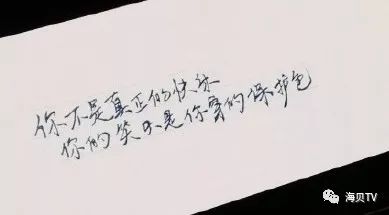 你不是真正的快乐
你的笑只是你穿的保护色
海贝TV